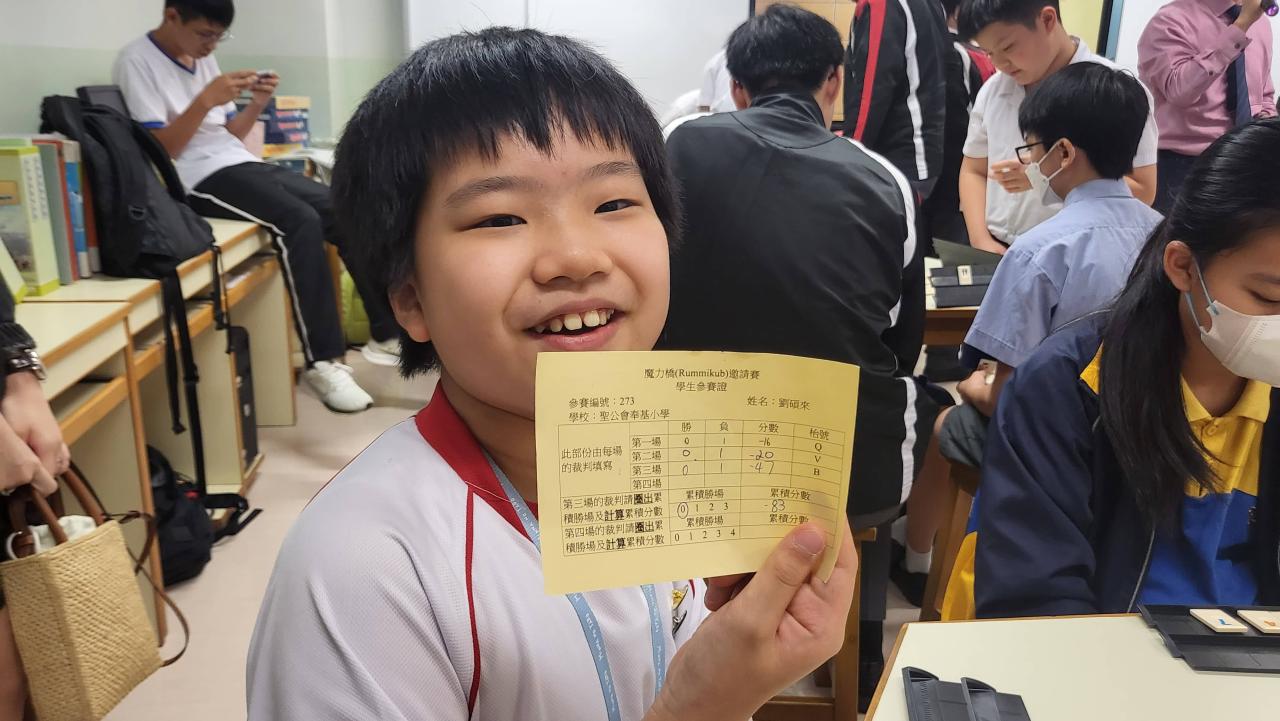 魔力橋(Rummikub)邀請賽
學生參賽證
參賽編號：273 姓名：劉碩來
學校：聖公會奉基小學
勝 負 分數 枱號
此部份由每場的裁判填寫
第一場 0 1 -16 Q
第二場 0 1 -20 V
第三場 0 1 -47 B
第四場
第三場的裁判請圈出累 累積勝場 累積分數
積勝場及計算累積分數 0 1 2 3 -83
第四場的裁判請圈出累 累積勝場 累積分數
積勝場及計算累積分數 0 1 2 3 4